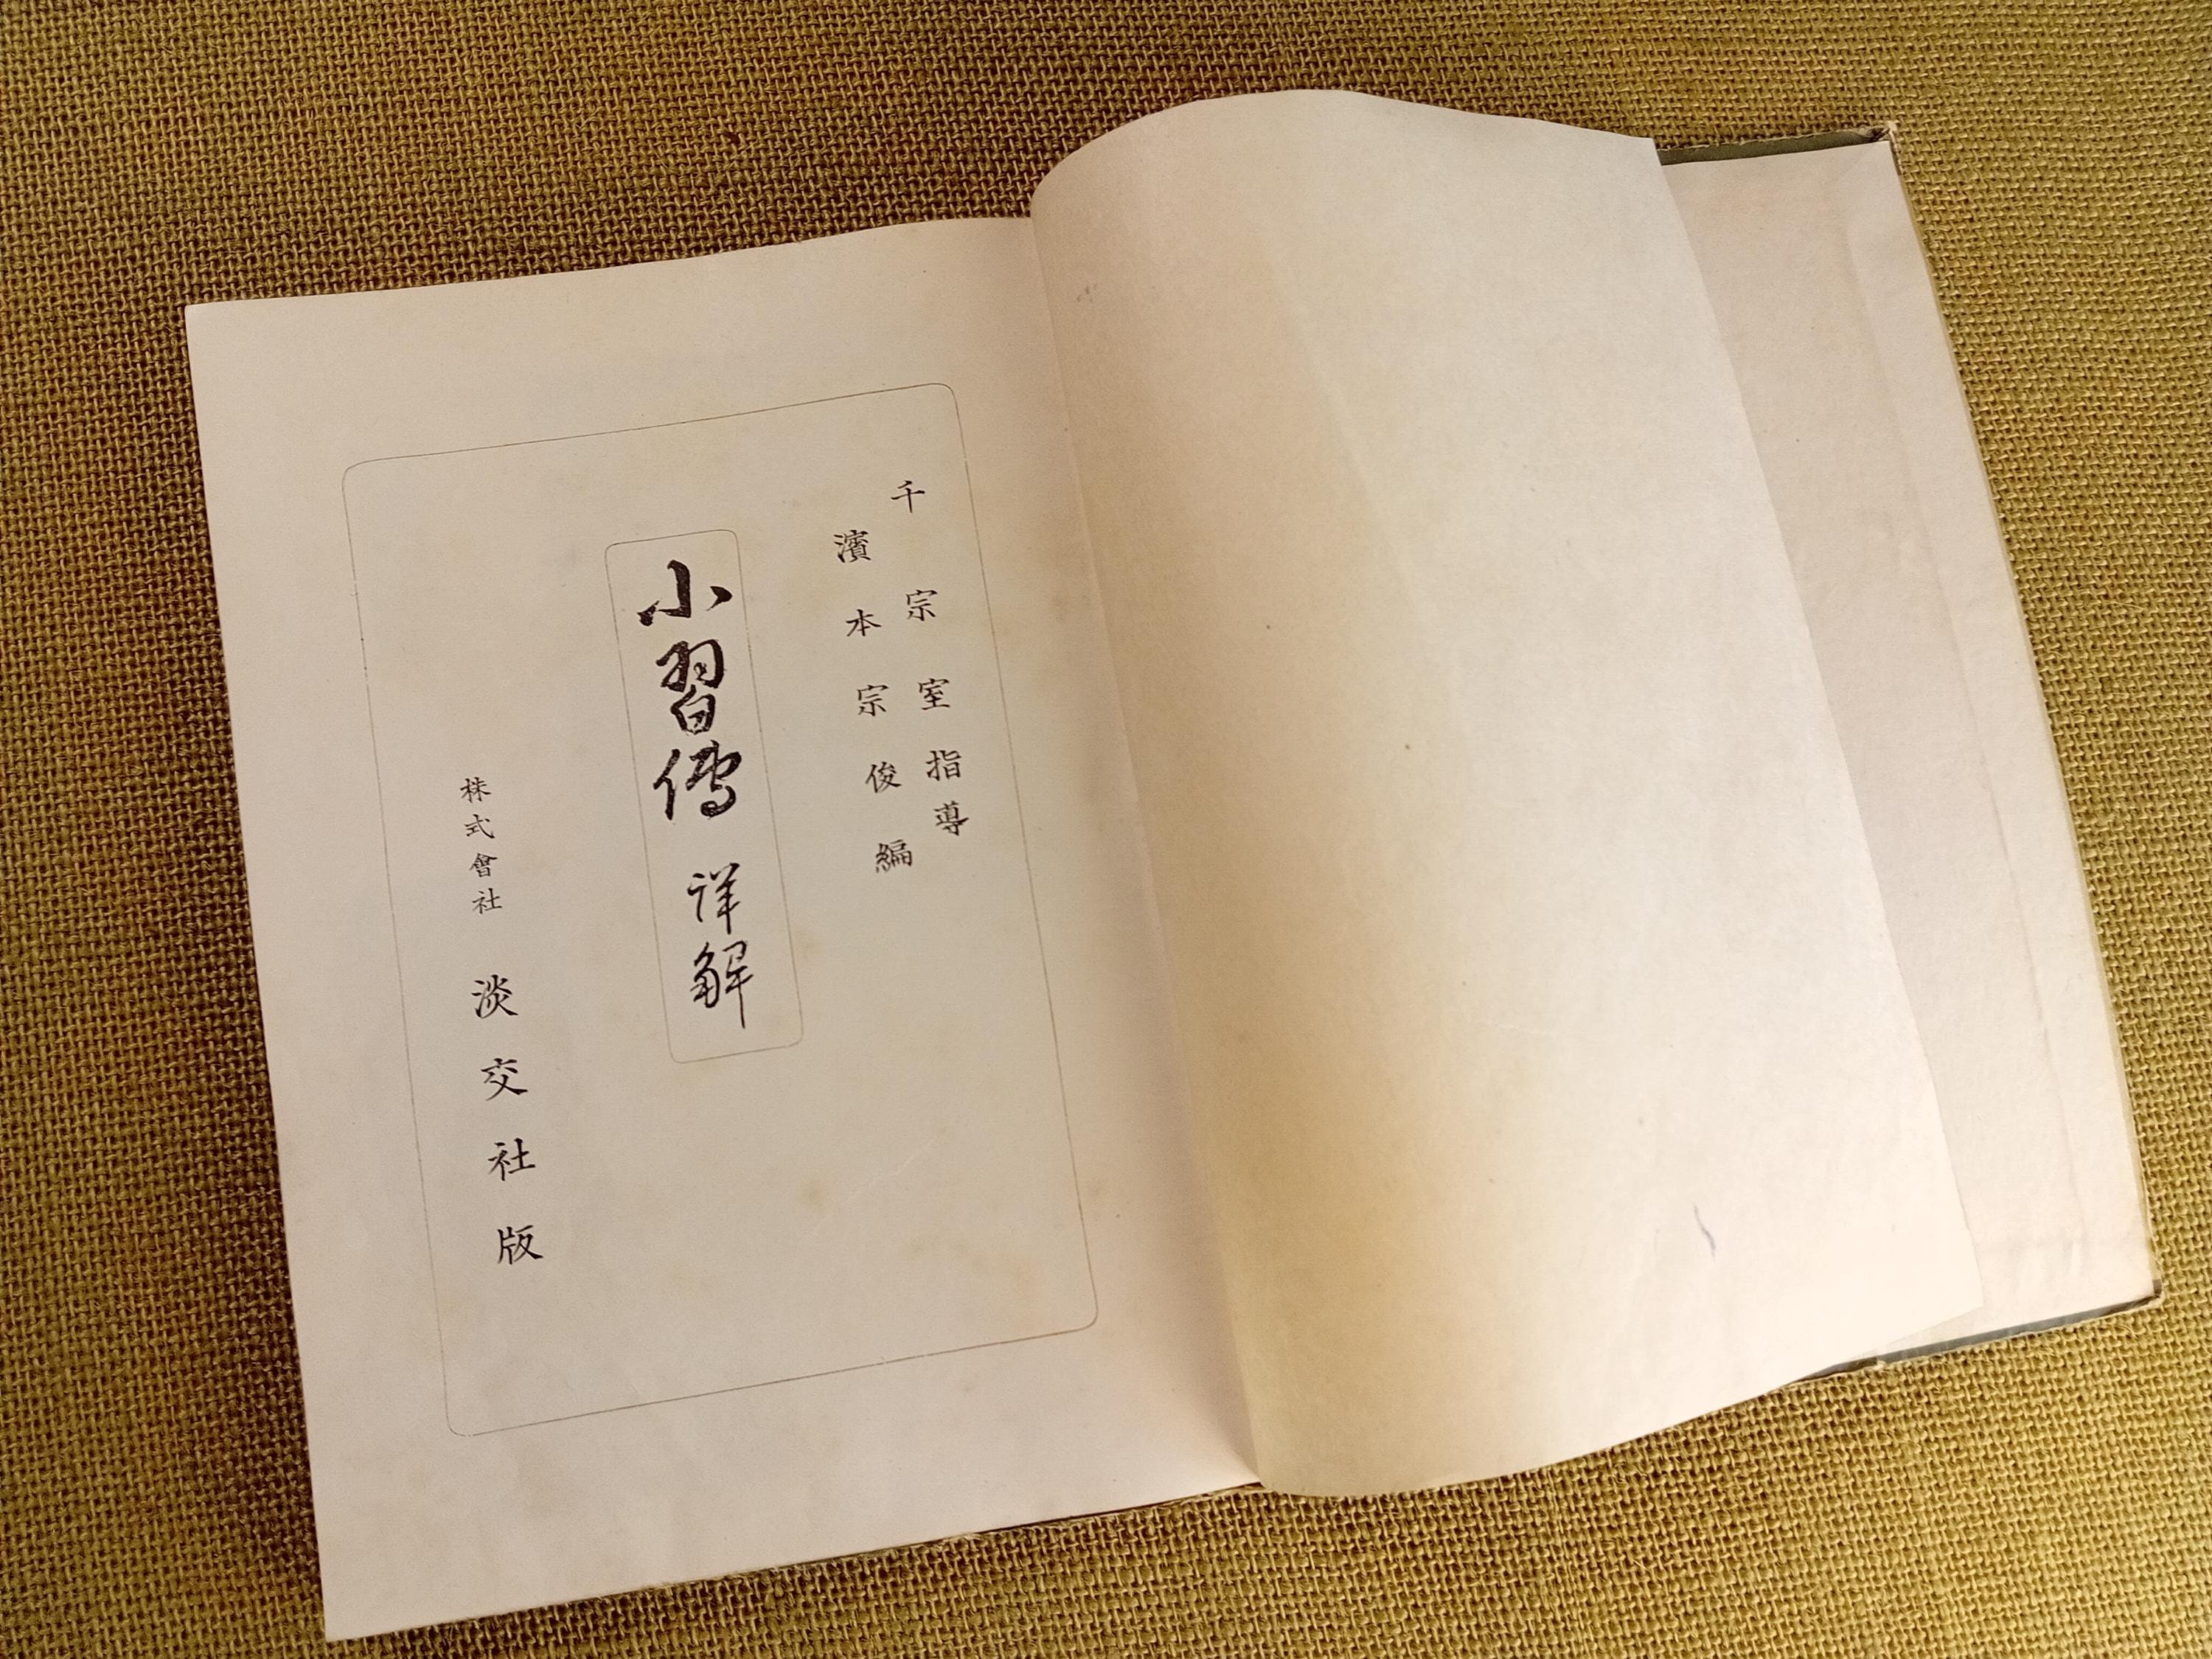 千宗室指導
濱本宗俊編
小習傳 詳解
株式會社 淡交社版